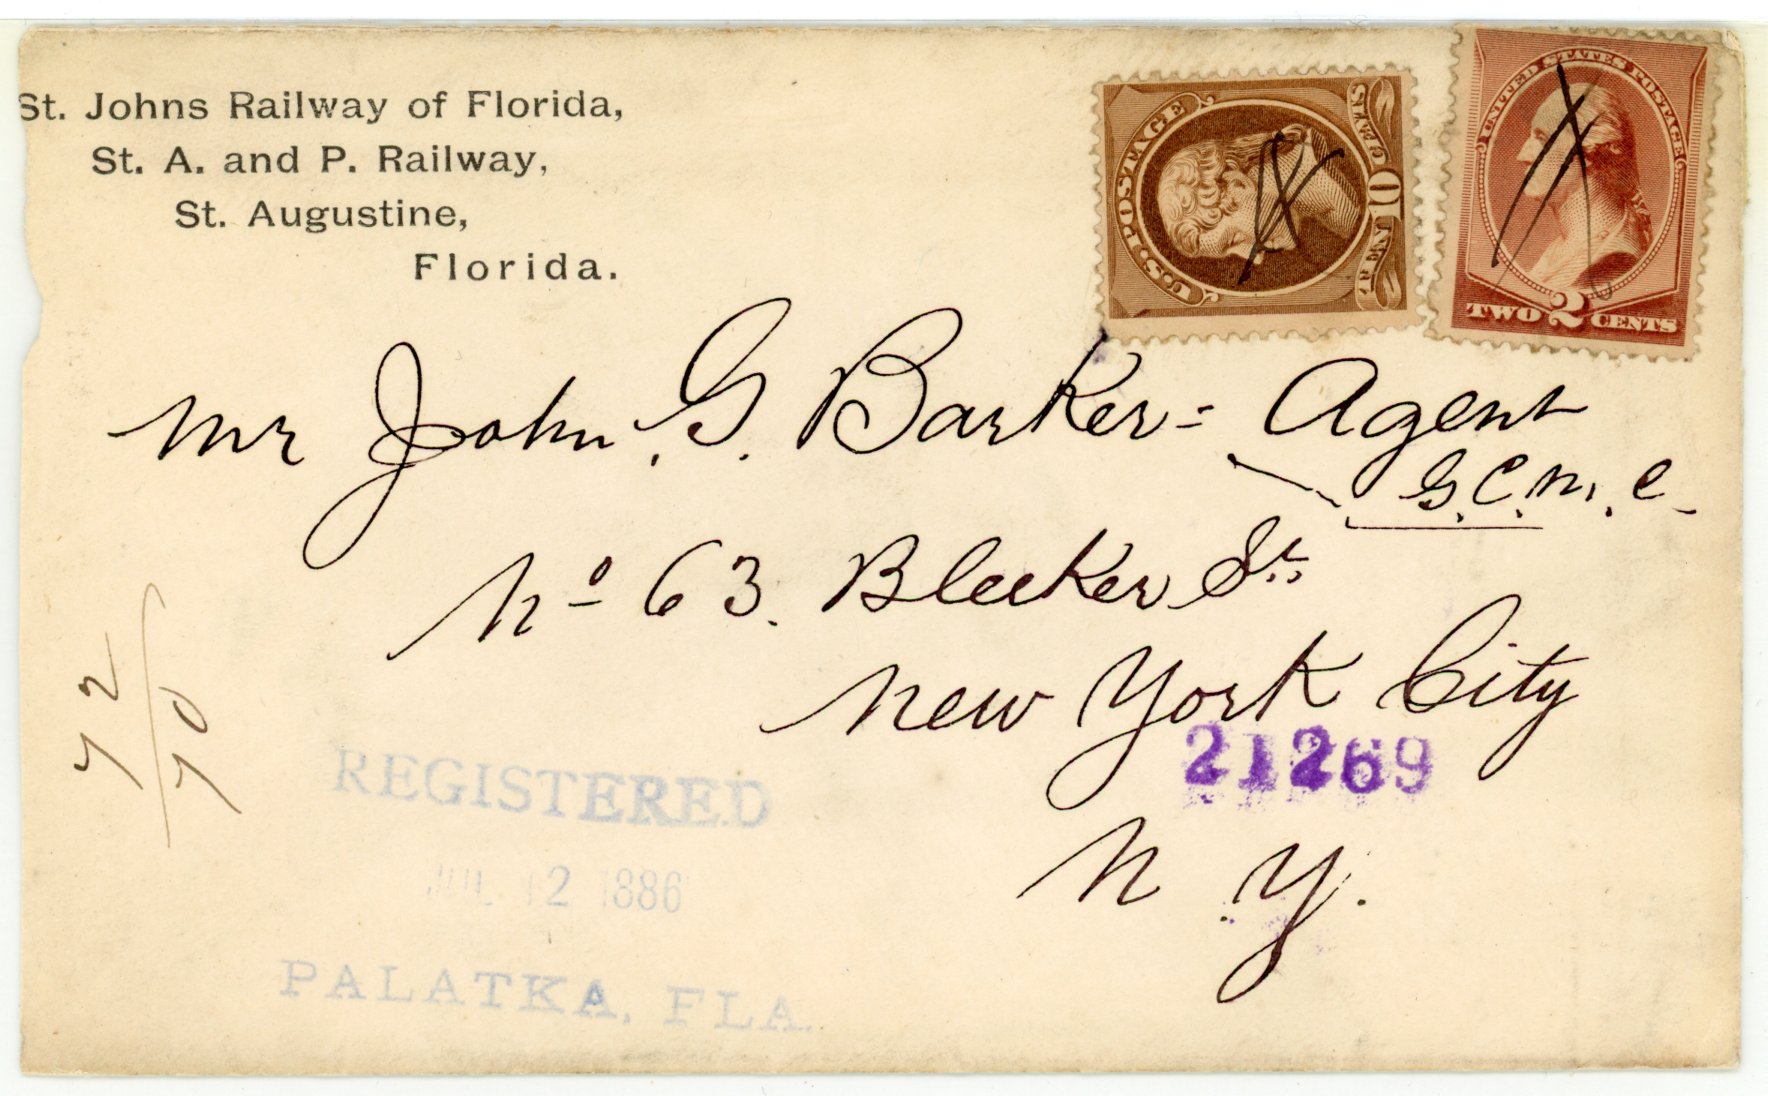 St. Johns Railway of Florida,
St. A. and P. Railway,
St. Augustine,
Florida.
U.S. POSTAGE
10
UNITED STATES POSTAGE
TWO 2 CENTS
Mr John. G. Barker = Agent
G. C. M. C.
No 63. Bleeker St.
New York City
21269
N. Y.
72
70
REGISTERED
JUL 12 1886
PALATKA, FLA.